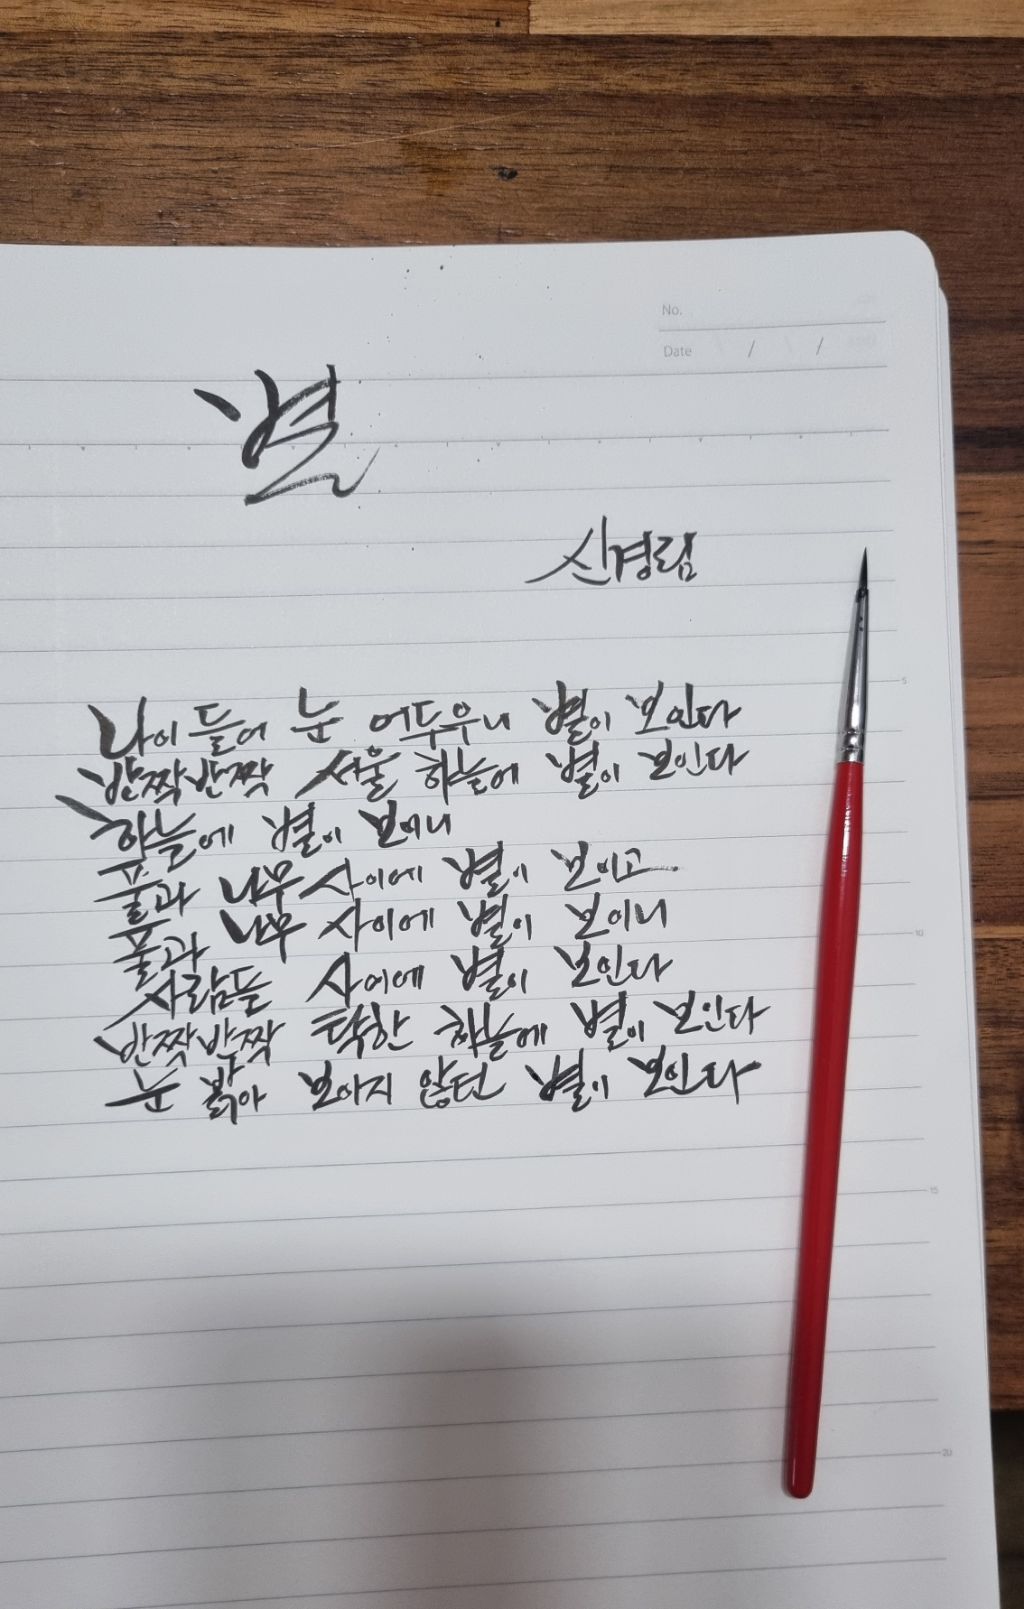 No.
Date / /
별
신경림
나이 들어 눈 어두우니 별이 보인다
반짝반짝 서울 하늘에 별이 보인다
하늘에 별이 보이니
풀과 나무 사이에 별이 보이고
풀과 나무 사이에 별이 보이니
사람들 사이에 별이 보인다
반짝반짝 탁한 하늘에 별이 보인다
눈 밝아 보이지 않던 별이 보인다
5
10
15
20